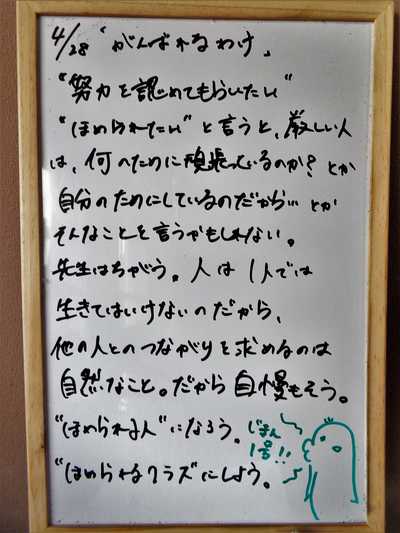 4/28 「がんばれるわけ」
"努力を認めてもらいたい"
"ほめられたい" と言うと、厳しい人
は、何のために頑張っているのか？とか
自分のためにしているのだから… とか
そんなことを言うかもしれない。
先生はちがう。人は1人では
生きてはいけないのだから、
他の人とのつながりを求めるのは
自然なこと。だから自慢もそう。
"ほめられる人" になろう。
"ほめられるクラス" にしよう。
じまん
1号!!